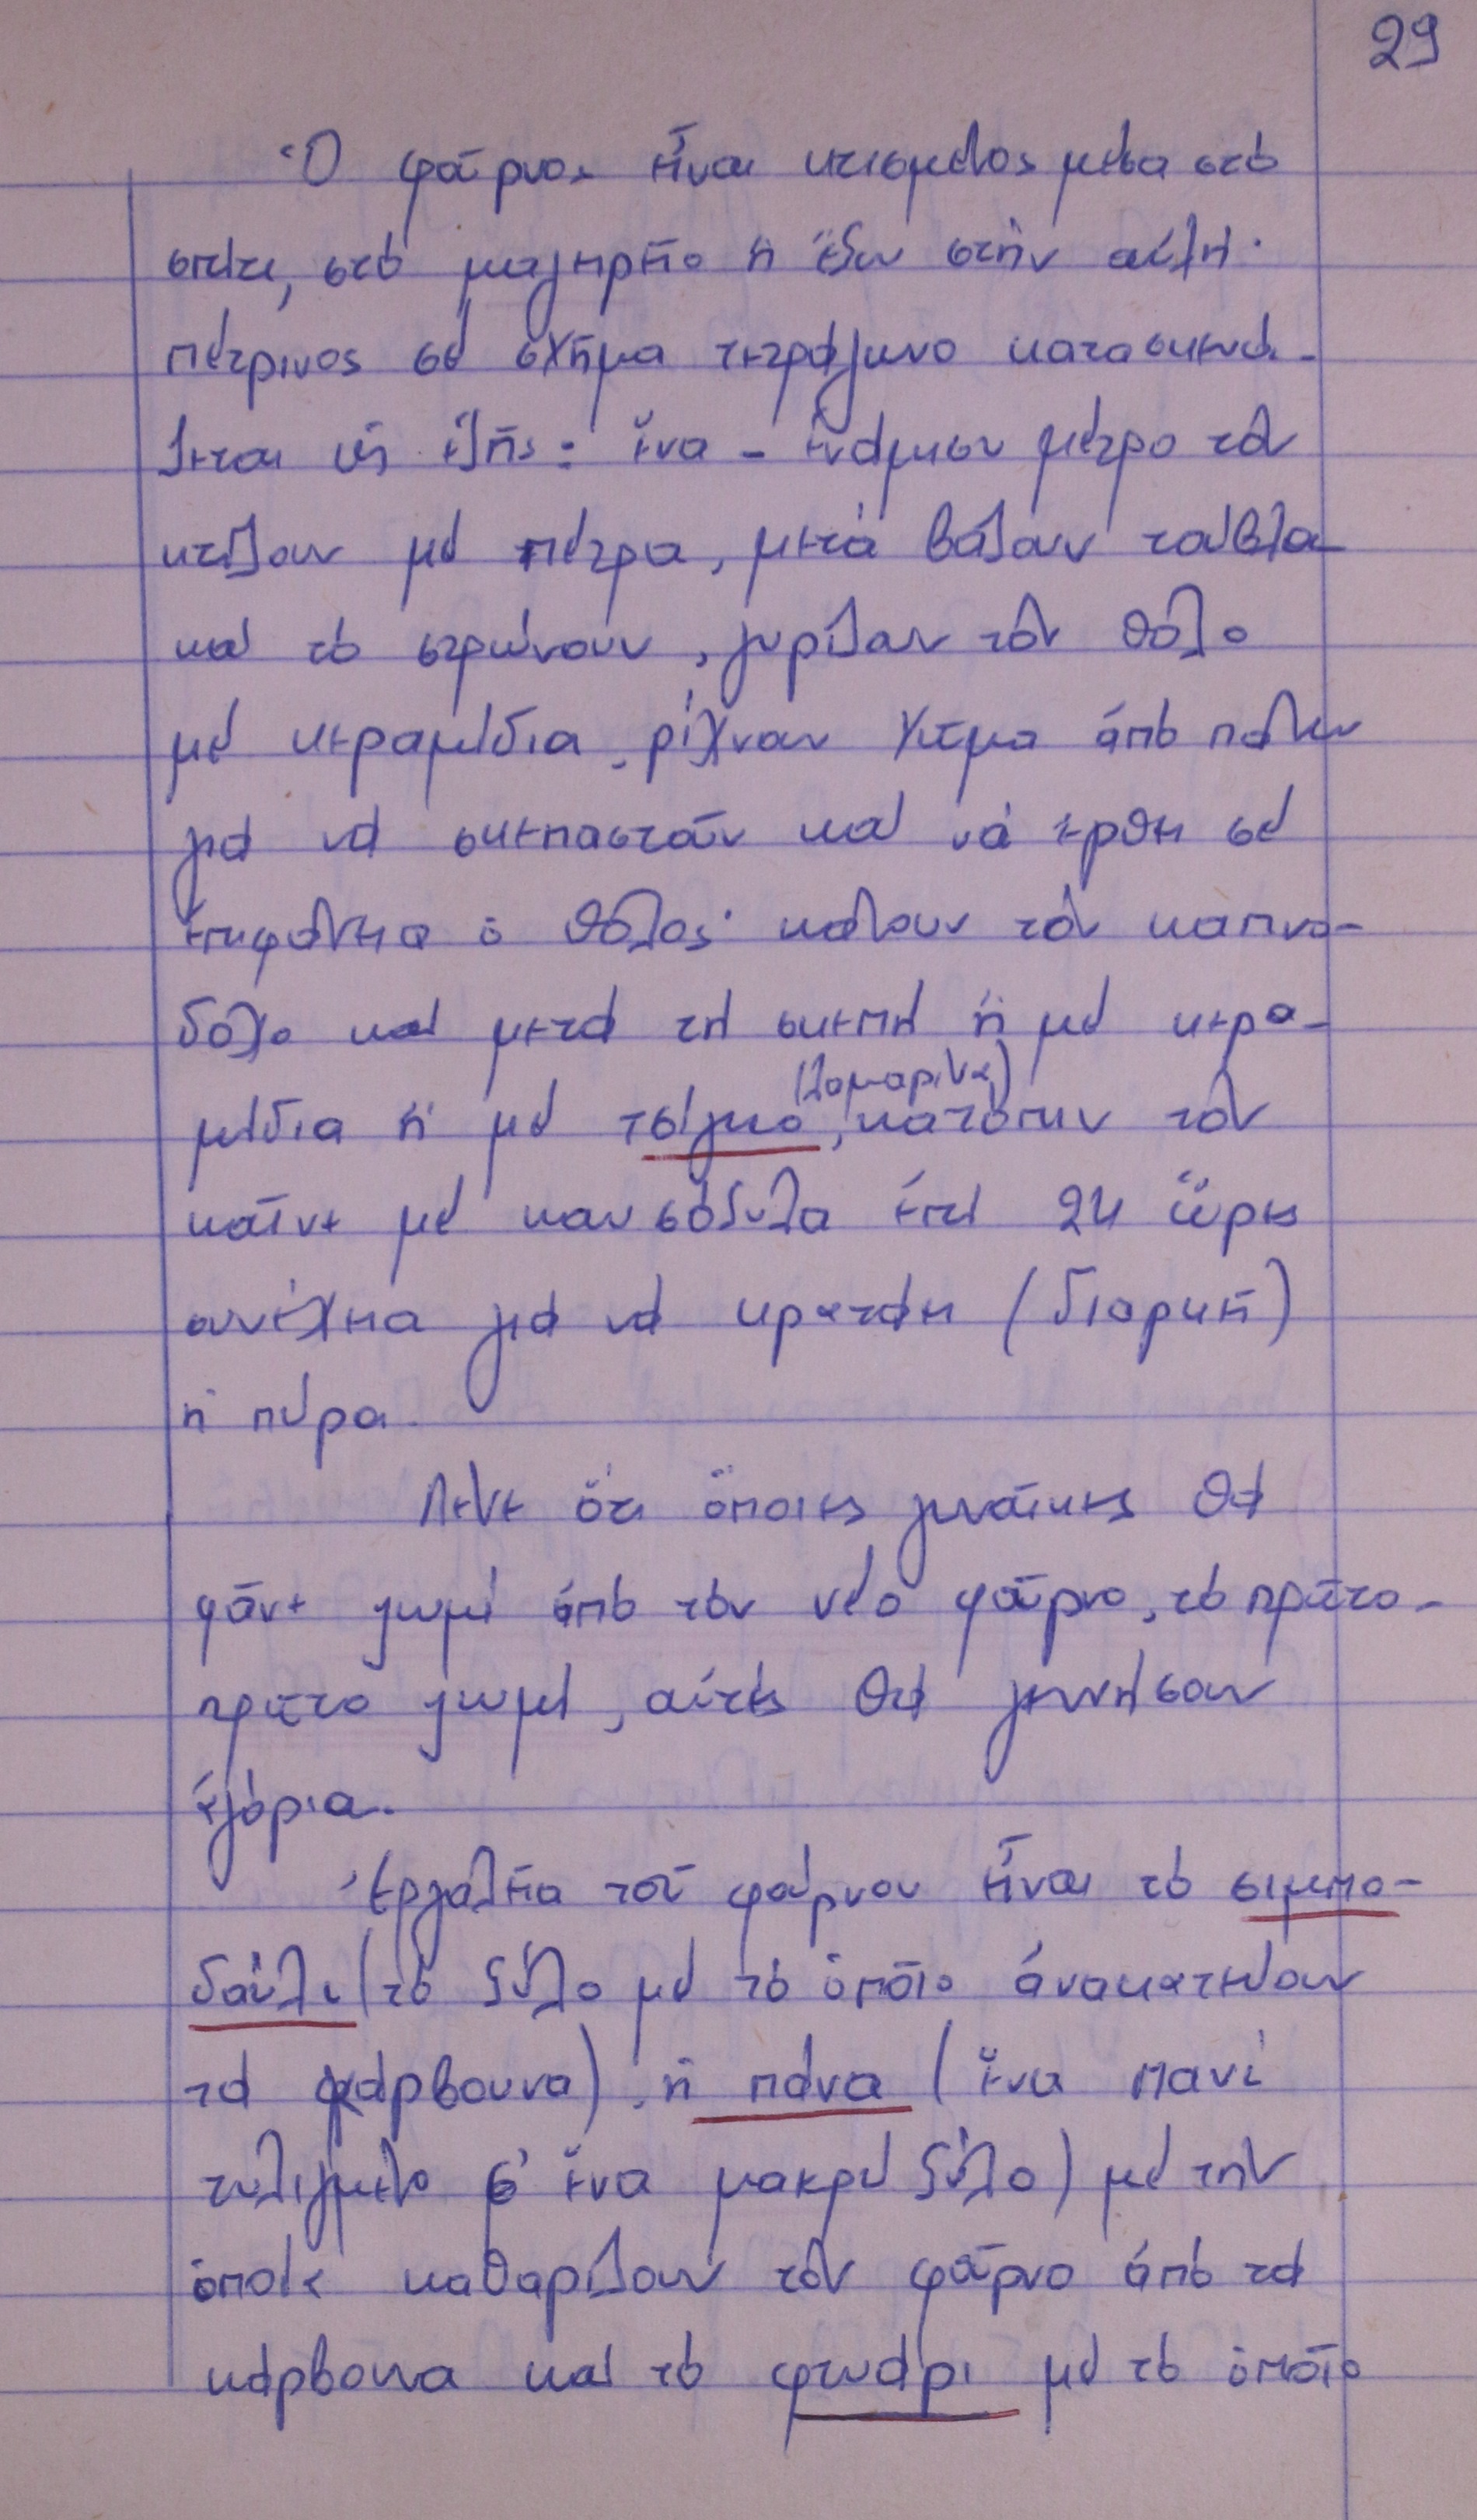 29
Ὁ φοῦρνος εἶναι κτισμένος μέσα στὸ
σπίτι, στὸ μαγηρεῖο ἢ ἔξω στὴν αὐλή·
πέτρινος σὲ σχῆμα τετράγωνο κατασκευά-
ζεται ὡς ἑξῆς: ἕνα - ἑνάμισυ μέτρο τὸν
κτίζουν μὲ πέτρα, μετὰ βάζουν τοῦβλα
καὶ τὸ στρώνουν, γυρίζουν τὸν θόλο
μὲ κεραμίδια, ρίχνουν χῶμα ἀπὸ πάνω
γιὰ νὰ σκεπαστοῦν καὶ νὰ ἔρθη σὲ
ἐπιφάνεια ὁ θόλος· κάνουν τὸν καπνο-
δόχο καὶ μετὰ τὴ σκεπὴ ἢ μὲ κερα-
μίδια ἢ μὲ τσίγκο, (λαμαρίνα) κατόπιν τὸν
καῖνε μὲ καυσόξυλα ἐπὶ 24 ὧρες
συνέχεια γιὰ νὰ κρατάη (διαρκῆ)
ἡ πύρα.
Λένε ὅτι ὅποιες γυναῖκες θὰ
φᾶνε ψωμὶ ἀπὸ τὸν νέο φοῦρνο, τὸ πρῶτο-
πρῶτο ψωμί, αὐτὲς θὰ γεννήσουν
ἀγόρια.
Ἐργαλεῖα τοῦ φούρνου εἶναι τὸ σιμπο-
δαύλι (τὸ ξύλο μὲ τὸ ὁποῖο ἀνακατεύουν
τὰ κάρβουνα), ἡ πάνα (ἕνα πανὶ
τυλιγμένο σ' ἕνα μακρὺ ξύλο) μὲ τὴν
ὁποία καθαρίζουν τὸν φοῦρνο ἀπὸ τὰ
κάρβουνα καὶ τὸ φτυάρι μὲ τὸ ὁποῖο